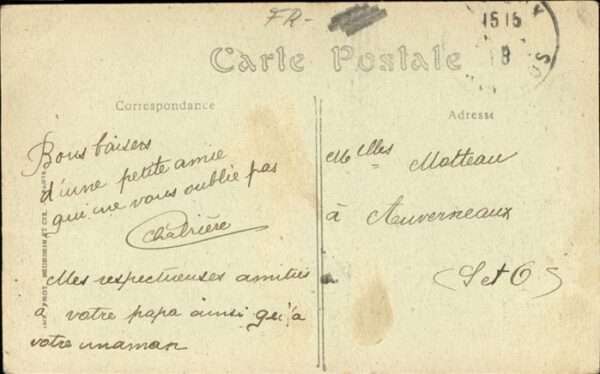 FR-
1515
8
Carte Postale
Correspondance
Adresse
Bons baisers
d'une petite amie
qui ne vous oublie pas
Mes respectueuses amitiés
à votre papa ainsi qu'à
votre maman
Melles Motteau
à Auverneaux
(S et O)